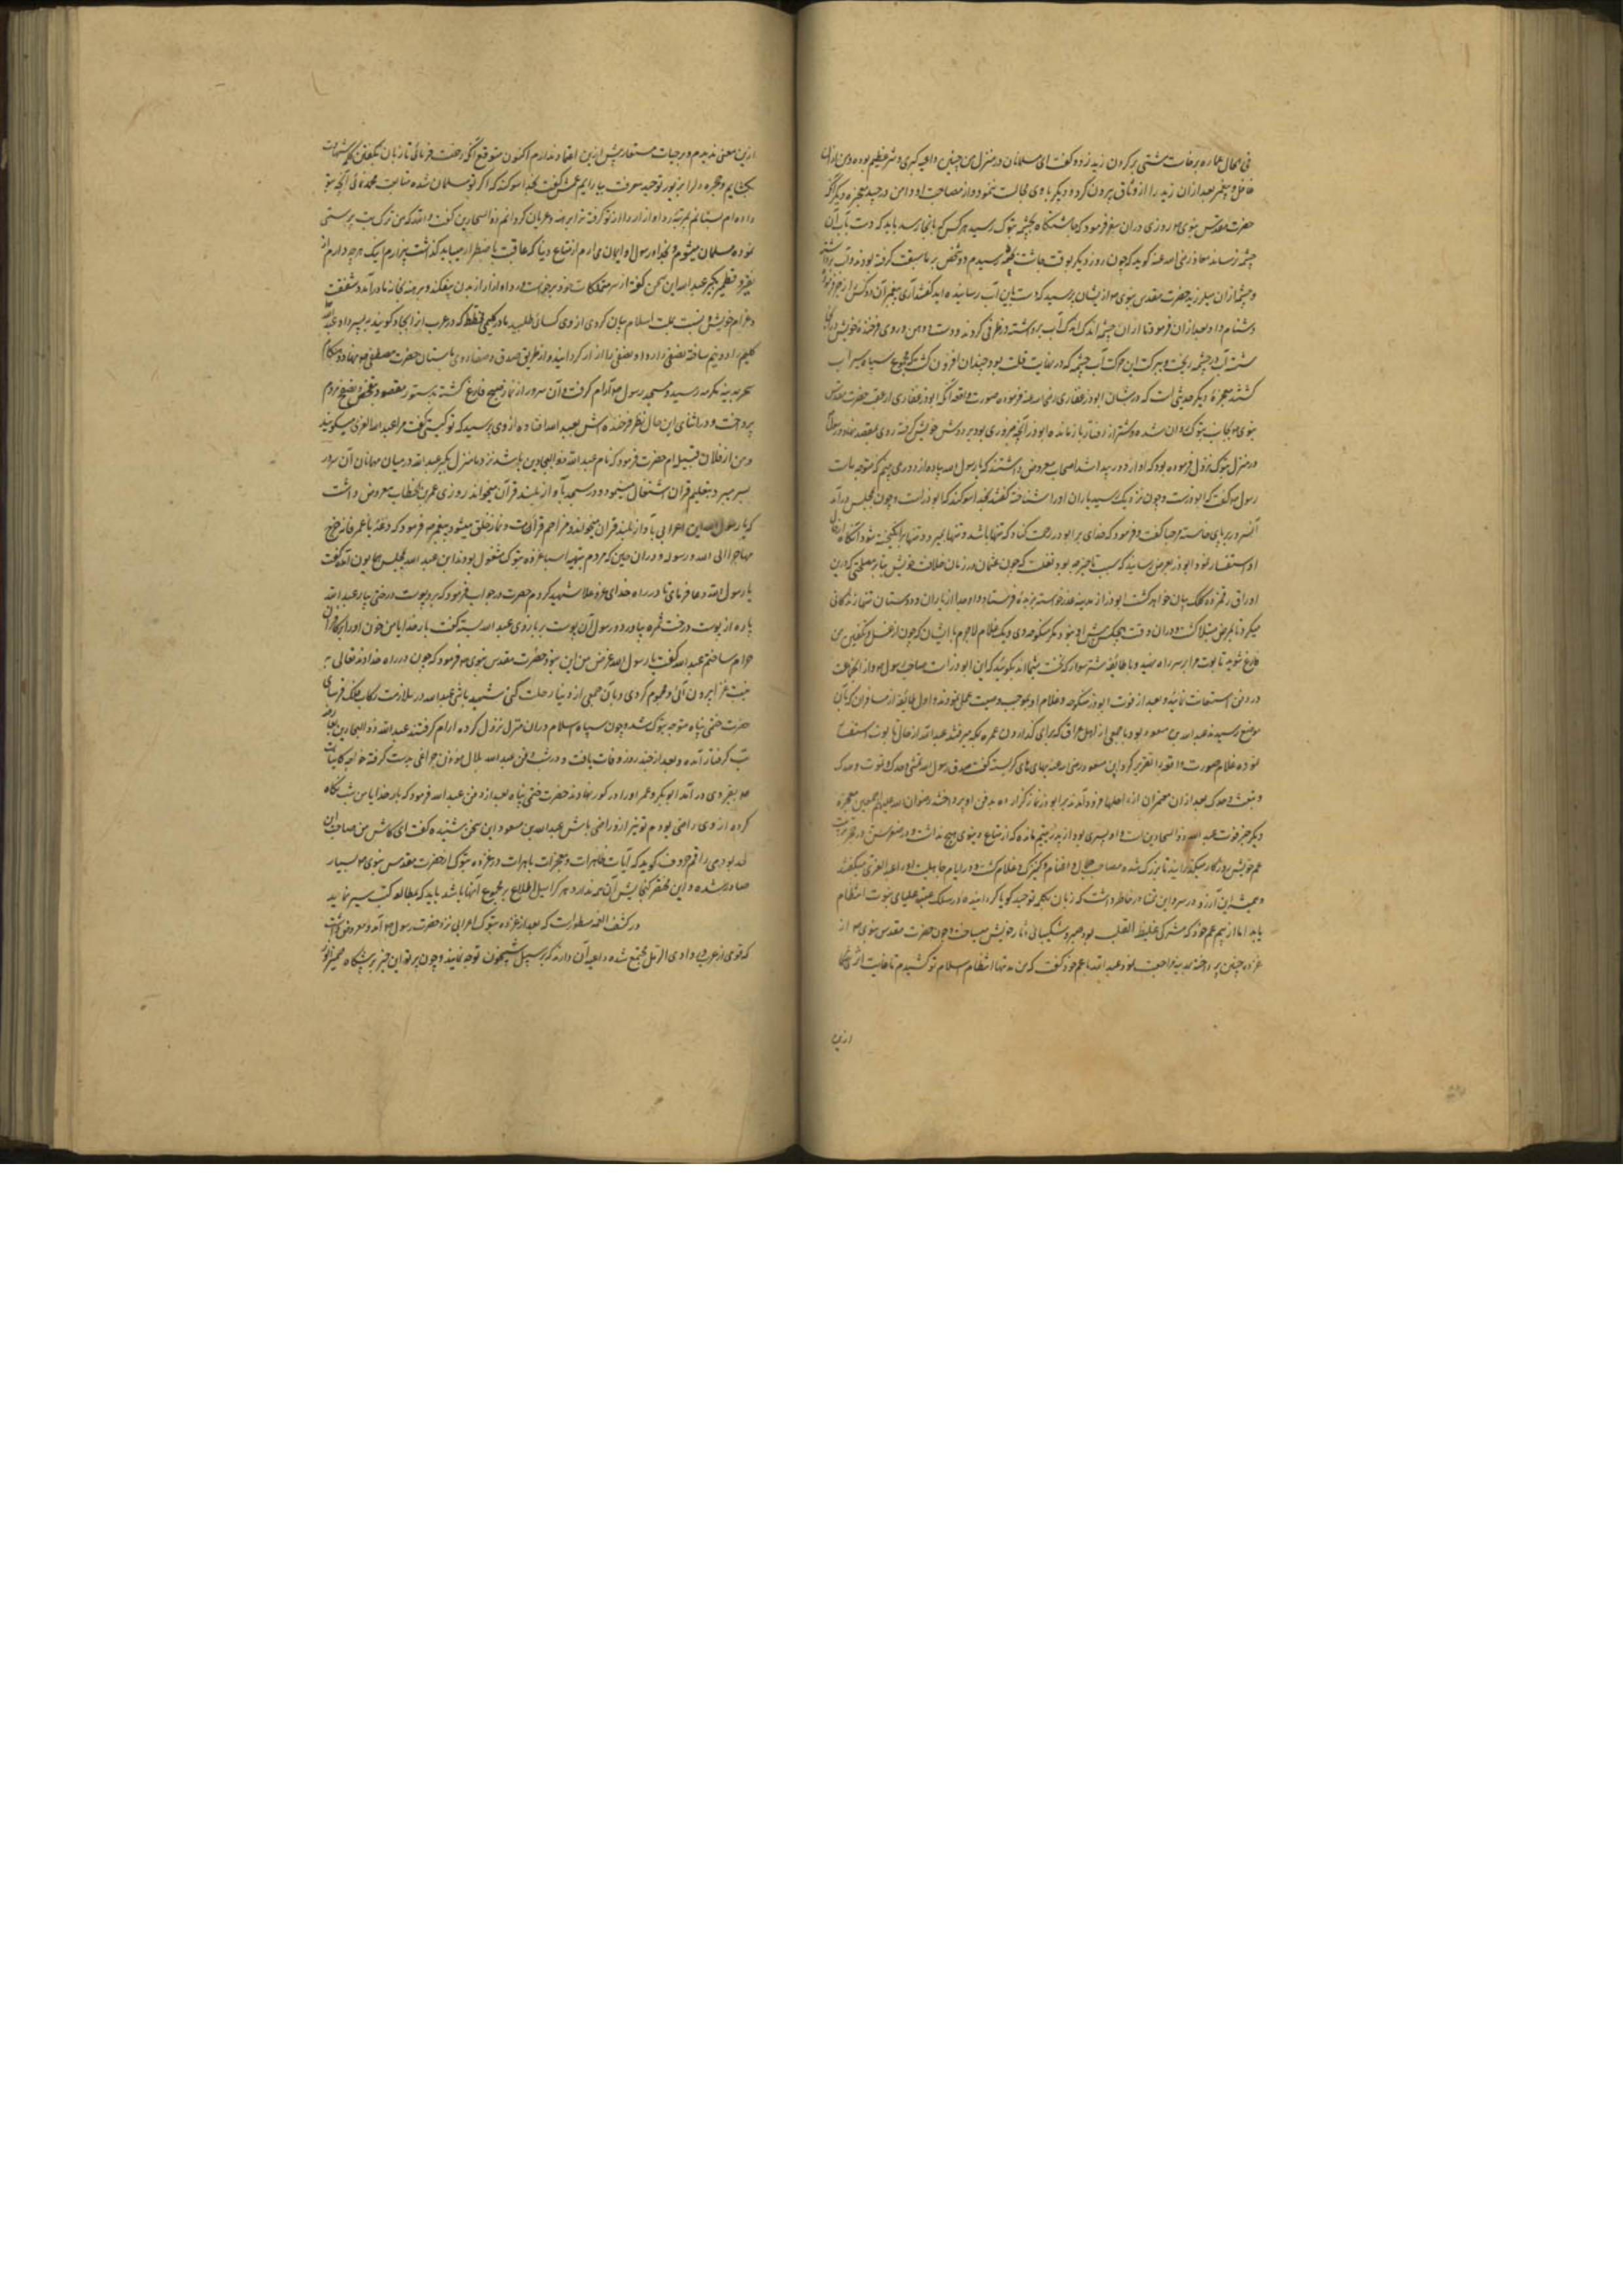 فی الحال عماره برخاست مشتی بر گردن زید زده گفت ای مسلمانان در منزل من چنین داهیه کبری و شر عظیم بوده و من ازان
غافل و پیغمبر بعد ازان زید را از وثاق بیرون کرد و دیگر با وی مجالست ننمود و از مصاحبت او دامن در چید معجزه دیگر آنکه
حضرت مقدس نبوی روزی دران سفر فرمود که چاشتگاه بچشمه تبوک رسید هر کس که بانجا رسد باید که دست بآب آن
چشمه نرساند معاذ رضی الله عنه گوید که چون روز دیگر بوقت چاشت بچشمه رسیدم دو شخص بر ما سبقت گرفته بودند و آب
حضرت مقدس نبوی از یشان پرسید که دست باین آب رسانیده اید گفتند آری پیغمبر آن دو کس را
دشنام داد و بعد ازان فرمود تا ازان چشمه اندک اندک آب برداشته در ظرفی کردند و دست و دهن و روی فرخنده خویش
شسته آب در چشمه ریخت و ببرکت این حرکت آب چشمه که در غایت قلت بود چندان افزون گشت که مجموع سپاه سیراب
گشتند معجزه دیگر حدیثی است که در شان ابوذر غفاری رضی الله عنه فرموده صورت واقعه آنکه ابوذر غفاری از عقب حضرت مقدس
نبوی بجانب تبوک روان شده و شتر از رفتار باز مانده ابوذر آنچه ضروری بود بر دوش خویش گرفته روی بمقصد نهاد
در منزل تبوک نزول فرموده بود که او از دور پیدا شد اصحاب معروض داشتند که یا رسول الله پیاده از دور می بینم که متوجه ماست
رسول گفت که ابوذرست و چون نزدیک رسید یاران او را شناخته گفتند بخدا سوگند که ابوذر است و چون بمجلس در آمد
آنسرور بر پای خاسته مرحبا گفت و فرمود که خدای بر ابوذر رحمت کناد که تنها باشد و تنها بمیرد و تنها برانگیخته شود آنگاه
استفسار نمود ابوذر بعرض رسانید که سبب تاخیر چه بود نقلست که چون عثمان در زمان خلافت خویش بنابر مصلحتی که درین
اوراق رقمزده کلک بیان خواهد گشت ابوذر از مدینه عذر خواسته بربذه فرستاد و او جدا از یاران و دوستان تنها زندگانی
میکرد تا بمرض مبتلا گشت و دران وقت هیچکس پیش او نبود مگر منکوحه وی و یک غلام لاجرم با ایشان که چون از غسل و تکفین من
فارغ شوید تابوت مرا بر سر راه نهید و با طایفه شتر سوار که نخست بشما آید بگویند که این ابوذرست صاحب رسول
در دفن استعانت نمائید و بعد از فوت ابوذر منکوحه و غلام او بموجب وصیت عمل نمودند و اول طایفه از مسافران که بآن
موضع رسیدند عبدالله بن مسعود بود با جمعی از اهل عراق که برای گذاردن عمره بمکه میرفتند عبدالله از حال تابوت استفسار
نموده غلام صورت واقعه را تقریر کرد ابن مسعود رضی الله عنه بهای های گریسته گفت صدق رسول الله تمشی وحدک و تموت وحدک
و تبعث وحدک بعد ازان معتمران از راحلها فرود آمدند بر ابوذر نماز گزارده بدفن او پرداختند رضوان الله علیهم اجمعین معجزه
دیگر خبر فوت عبدالله ذو البجادین است و او پسری بود از پدر یتیم مانده که از متاع دنیوی هیچ نداشت
عم خویش روزگار میگذرانید تا بزرگ شده صاحب جمال و اغنام و کنیزک و غلام گشت و در ایام جاهلیت او را عبد العزی میگفتند
و همیشه این آرزو در سر و این تمنا در خاطر داشت که زبان بکلمه توحید گویا گردانیده در سلک عتبه علیای نبوت انتظام
یابد اما از بیم عم خود که مشرکی غلیظ القلب بود صبر و شکیبائی شعار خویش میساخت و چون حضرت مقدس نبوی از
غزوه حنین پرداخته بمدینه مراجعت نمود عبدالله با عم خود گفت که من مدتها انتظار اسلام تو کشیدم تا غایت اثری
ازین
ازین معنی ندیدم و بر حیات مستعار بیش ازین اعتماد ندارم اکنون متوقع آنکه رخصت فرمائی تا زبان بگفتن کلمه شهادت
بگشایم و حجره دل را بزیور توحید و معرفت بیارایم عمش گفت بخدا سوگند که اگر تو مسلمان شده متابعت محمد نمائی آنچه بتو
داده ام بستانم بمرتبه که ردا و ازار را از تو گرفته ترا برهنه و عریان گردانم ذو البجادین گفت والله که من ترک بت پرستی
نموده مسلمان میشوم و بخدا و رسول او ایمان می آرم از متاع دنیا که عاقبت باضطرار میباید گذاشت بیزارم اینک هر چه دارم از
نقیر و قطمیر بگیر عبدالله این سخن گفته از سر متملکات خود برخاست و ردا و ازار از بدن بیفکند و برهنه بخانه مادر آمد و شفقت
و غرام خویش و نسبت بملت اسلام بیان کردی از وی کسائی طلبید مادر گلیمی مخطط که در عرب انرا بجاد گویند به پسر داد
گلیم را دو نیم ساخته نصفی را ردا و نصفی را ازار گردانید و از طریق صدق و صفا روی باستان حضرت مصطفی نهاد
سحر بمدینه مکرمه رسید و مسجد رسول آرام گرفت و آن سرور از نماز صبح فارغ گشته بدستور معهود بتفحص و تصفح مردم
پرداخت و در اثنای این حال نظر فرخنده اش بعبد الله افتاده از وی پرسید که تو کیستی گفت مرا عبد العزی میگویند
و من از فلان قبیله ام حضرت فرمود که نام عبدالله ذو البجادین باشد نزد ما منزل بگیر عبدالله در میان مهمانان آن سرور
بسر میبرد و بتعلیم قران اشتغال مینمود و در مسجد بآواز بلند قرآن میخواند روزی عمر بن الخطاب معروض داشت
که یا رسول الله این اعرابی بآواز بلند قران میخواند و مزاحم قرائت و نماز خلق میشود پیغمبر فرمود که دعه یا عمر فانه خرج
مهاجرا الی الله و رسوله و دران حین که مردم بتهیه اسباب غزوه تبوک مشغول بودند این عبدالله بمجلس همایون آمده گفت
یا رسول الله دعا فرمای تا در راه خدای عز و علا شهید گردم حضرت در جواب فرمود که برو پوست درختی بیار عبدالله
پاره از پوست درخت ثمره بیاورد و رسول آن پوست بر بازوی عبدالله بسته گفت بار خدایا من خون او را بر کافران
حرام ساختم عبدالله گفت یا رسول الله غرض من این نبود حضرت مقدس نبوی فرمود که چون در راه خداوند تعالی بر
نیت غزا بیرون آئی و محموم گردی و بآن حمی از دنیا رحلت کنی شهید باشی عبدالله در ملازمت رکاب فلک فرسای
حضرت ختمی پناه متوجه تبوک شد و چون سپاه اسلام دران منزل نزول کرده آرام گرفتند عبدالله ذو البجادین
تب گرفتار آمده و بعد از چند روز وفات یافت و در شب دفن عبدالله بلال موذن چراغی بدست گرفته خواجه کاینات
بقبر وی در آمد ابوبکر و عمر او را در گور نهادند حضرت ختمی پناه بعد از دفن عبدالله فرمود که بار خدایا من شب
کرده از وی راضی بودم تو نیز ازو راضی باش عبدالله بن مسعود این سخن شنیده گفت ای کاش من صاحب این
لحد بودمی راقم حروف گوید که آیات ظاهرات و معجزات باهرات در غزوه تبوک از حضرت مقدس نبوی بسیار
صادر شده و این مختصر گنجایش آن همه ندارد هر کرا میل اطلاع بر مجموع آنها باشد باید که بمطالعه کتب سیر نماید
در کشف الغمه مسطورست که بعد از غزوه تبوک اعرابی نزد حضرت رسول آمد و معروض داشت
که قومی از عرب در وادی الرمل مجتمع شده داعیه آن دارند که بر سبیل شبیخون توجه نمایند و چون پرتو این خبر بر پیشگاه ضمیر انور